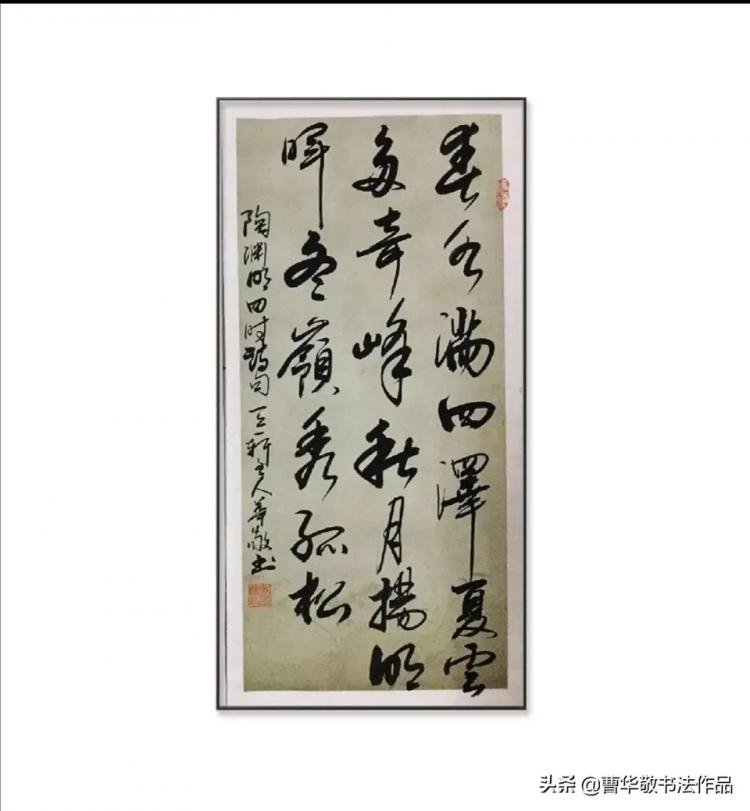 春水满四澤夏雲
多奇峰秋月揚明
晖冬嶺秀孤松
陶渊明四时诗句 轩主人華敬书
头条 @曹华敬书法作品